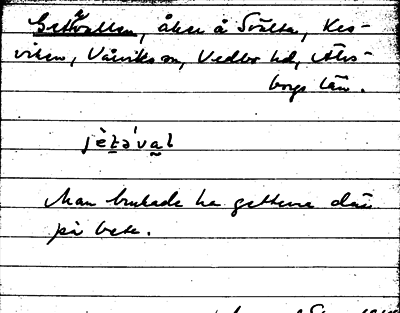 Gettvallen, åker å Svälta, Kes-
viken, Vårviks sn, Vedbo hd, Älvs-
borgs län.
jètəˈval
Man brukade ha gettena där
på bete.